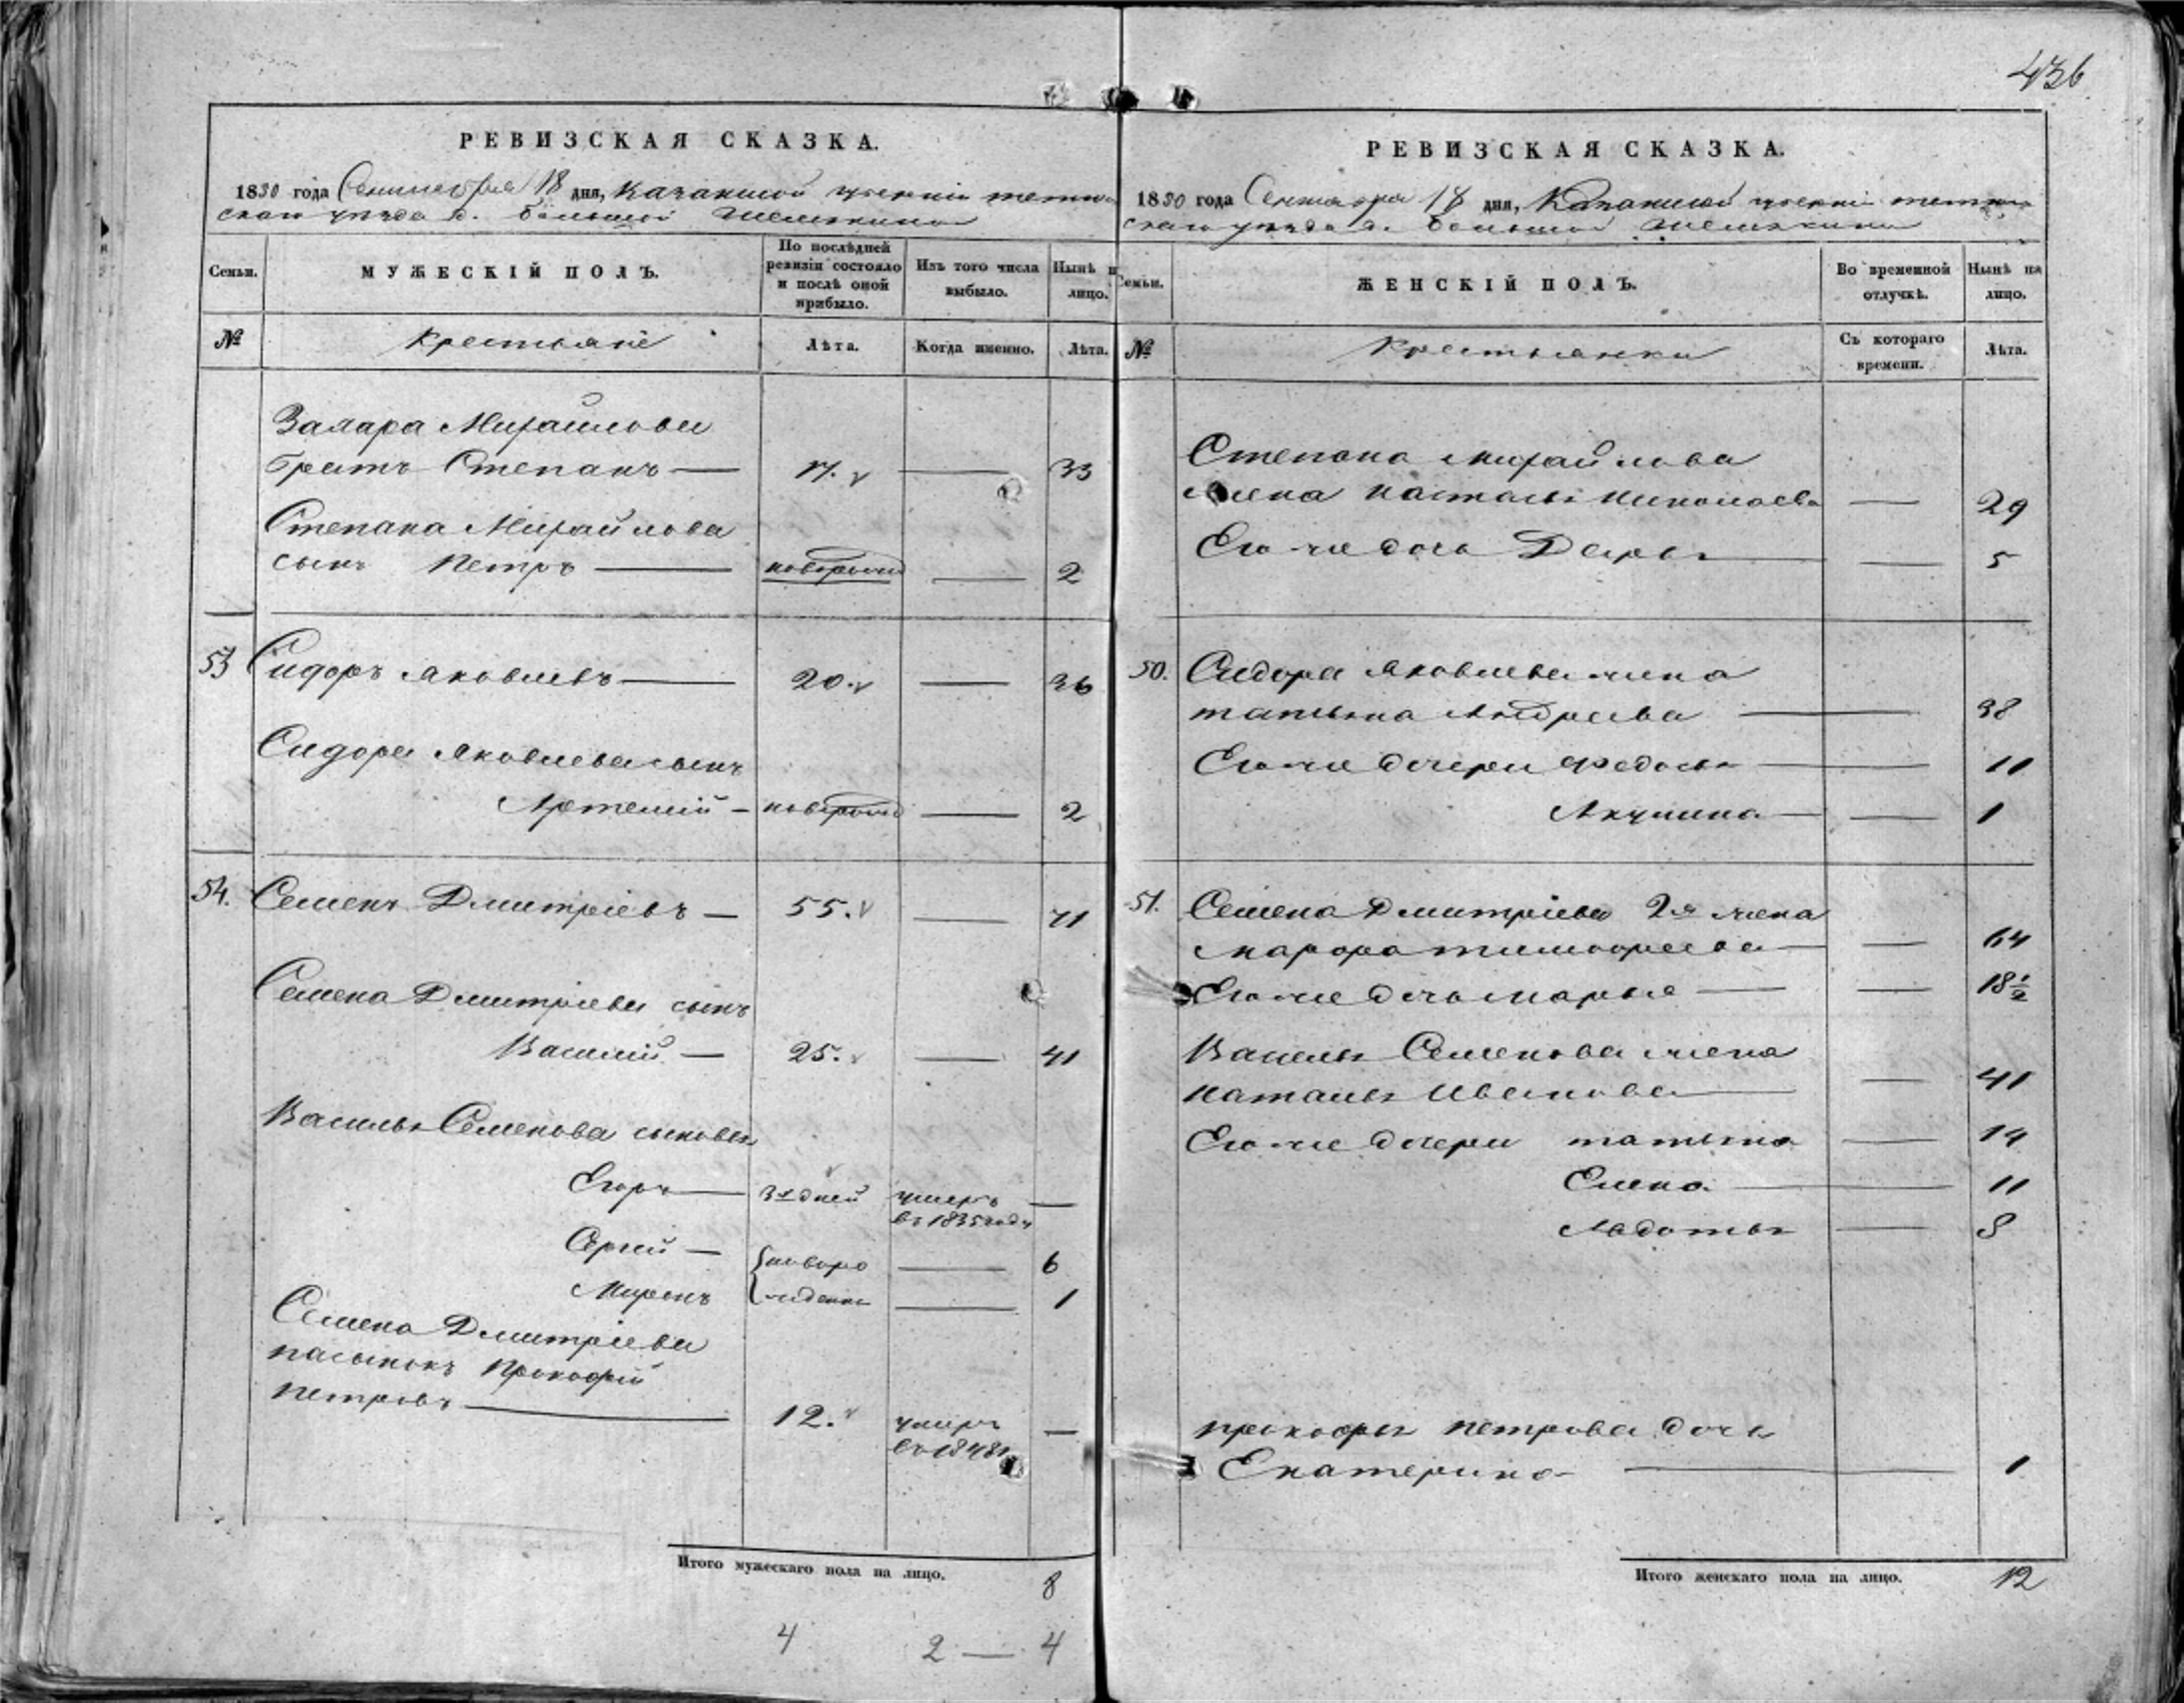 436
РЕВИЗСКАЯ СКАЗКА.
1850 года Сентября 18 дня, Казанской губерніи тетю
скаго уезда д. большой Шемякиной
Семьи.
МУЖЕСКІЙ ПОЛЪ.
По послѣдней
ревизіи состояло
и послѣ оной
прибыло.
Изъ того числа
выбыло.
Нынѣ н
лицо.
№
Крестьяне
Лѣта.
Когда именно.
Лѣта.
Захара Михайлова
братъ Степанъ — 17. — 33
Степана Михайлова
сынъ Петръ — новорожд — 2
53 Сидоръ Яковлевъ — 20. — 36
Сидора Яковлева сынъ
Артемий — новорожд — 2
54. Семенъ Дмитріевъ — 55. — 71
Семена Дмитріева сынъ
Василий — 25. — 41
Василья Семенова сыновья
Егоръ — 3х дней умеръ —
въ 1835 году
Сергей — {новоро — 6
Миронъ {жденны — 1
Семена Дмитріева
пасынокъ Прокофій
Петровъ — 12. умеръ —
въ 1848
Итого мужескаго пола на лицо. 8
4 2 — 4
РЕВИЗСКАЯ СКАЗКА.
1850 года Сентября 18 дня, Казанской губерніи тетю
скаго уезда д. большой Шемякиной
Семьи.
ЖЕНСКІЙ ПОЛЪ.
Во временной
отлучкѣ.
Нынѣ на
лицо.
№
Крестьянки
Съ котораго
времени.
Лѣта.
Степана Михайлова
жена Наталья Николаева — 29
Его же дочь Дарья — 5
50. Сидора Яковлева жена
татьяна Андреева — 38
Его же дочери Федосья — 11
Акулина — 1
51. Семена Дмитріева 2я жена
Марфа тимофеева — 64
Его же дочь Марья — 18½
Василья Семенова жена
Наталья Иванова — 41
Его же дочери татьяна — 14
Елена — 11
Авдотья — 8
прокофья петрова дочь
Екатерина — 1
Итого женскаго пола на лицо. 12